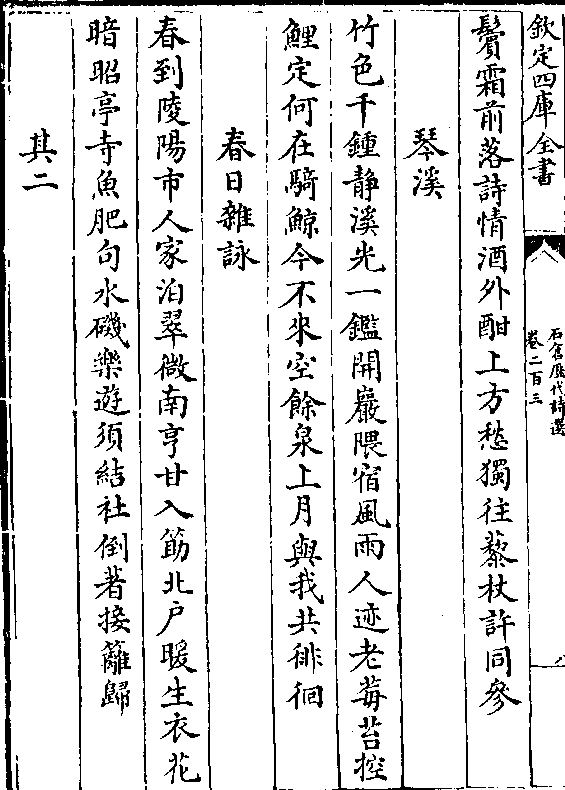 欽定四庫全書
石倉歷代詩選
卷二百三
鬢霜前落詩情酒外酣上方愁獨往藜杖許同參
琴溪
竹色千鍾静溪光一鑑開巖隈宿風雨人迹老莓苔控
鯉定何在騎鯨今不來空餘泉上月與我共徘徊
春日雜詠
春到陵陽市人家泊翠微南亨甘入筯北户暖生衣花
暗昭亭寺魚肥句水磯樂遊須結社倒著接籬歸
其二